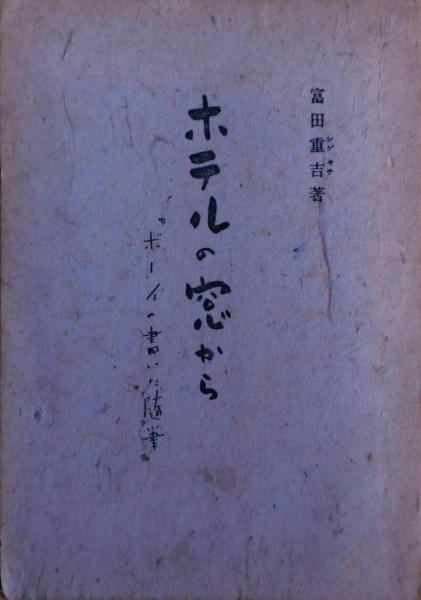 富田重吉著
シゲキチ
ホテルの窓から
『ボーイの書いた随筆』